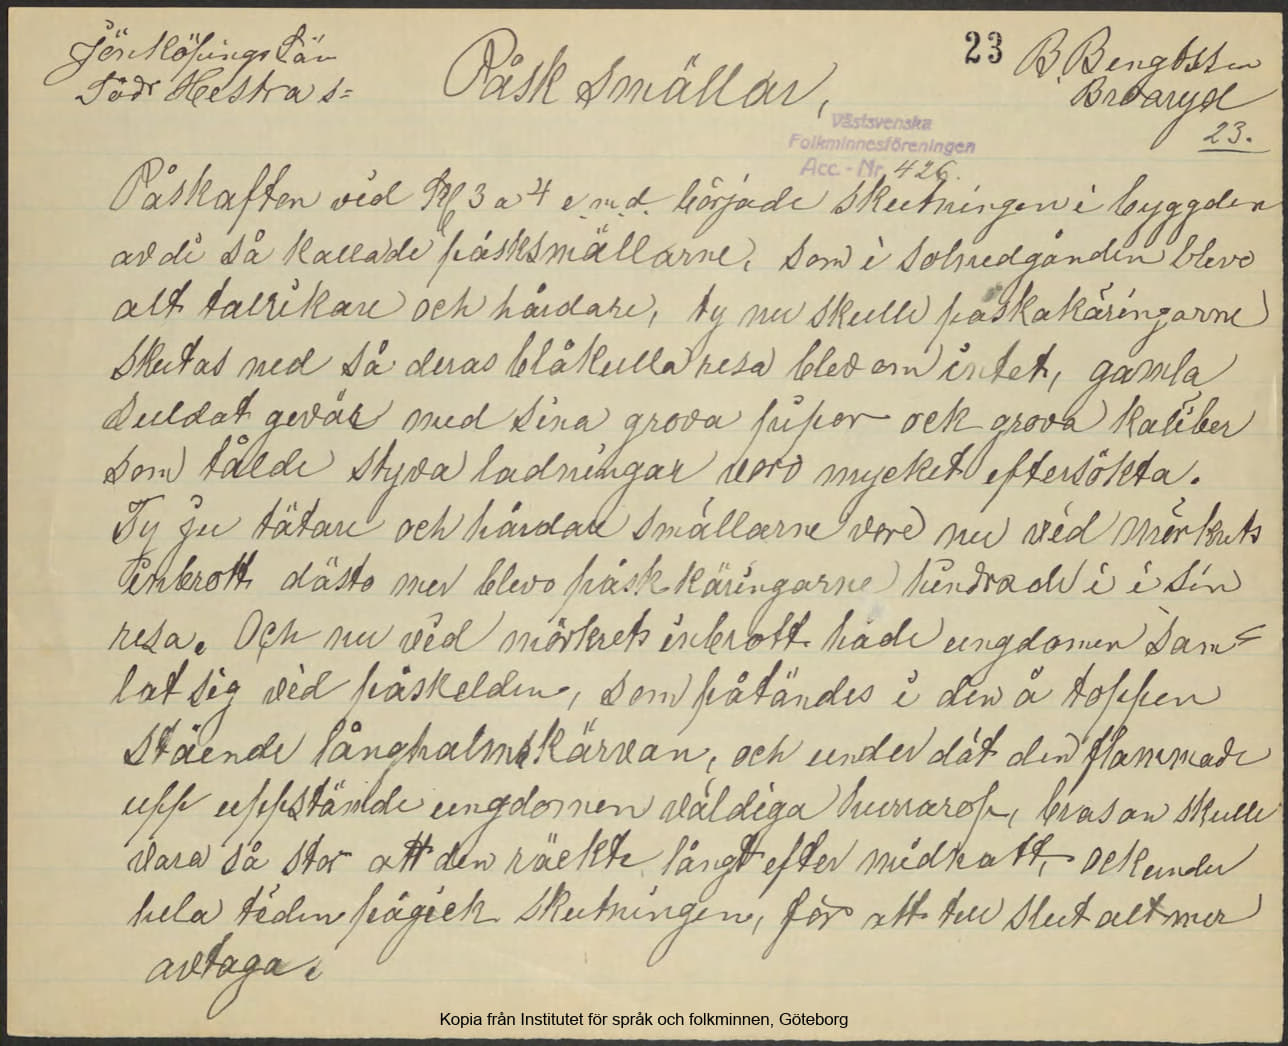 Jönköpings Län
Södr Hestra s=
Påsk smällar,
23
B Bengtsson
Brdaryd
23.
Västsvenska
Folkminnesföreningen
Acc. - Nr. 426.
Påskaften vid Kl 3 a 4 e.m.d. började skutningen i byggden
av di så kallade påsksmällarne, som i solnedgånden blevo
alt talrikare och hårdare, ty nu skulle påskakäringarne
skutas ned så deras blåkulla resa blev om intet, gamla
suldat gevär med sina grova pipor ock grova kaliber
som tålde styva ladningar voro mycket eftersökta.
Ty ju tätare och hårdare smällarne vore nu vid mörkrets
inbrott dästo mer blevo påsk käringarne hindrade i i sin
resa. Och nu vid mörkrets inbrott hade ungdomen sam=
lat sig vid påskelden, som påtändes i den å toppen
stående långhalmskärvan, och under dät den flammade
upp uppstämde ungdomen väldiga hurrarop, brasan skulle
vara så stor att den räckte långt efter midnatt, ock under
hela tiden pågick skutningen, för att till slut alt mer
avtaga.
Kopia från Institutet för språk och folkminnen, Göteborg